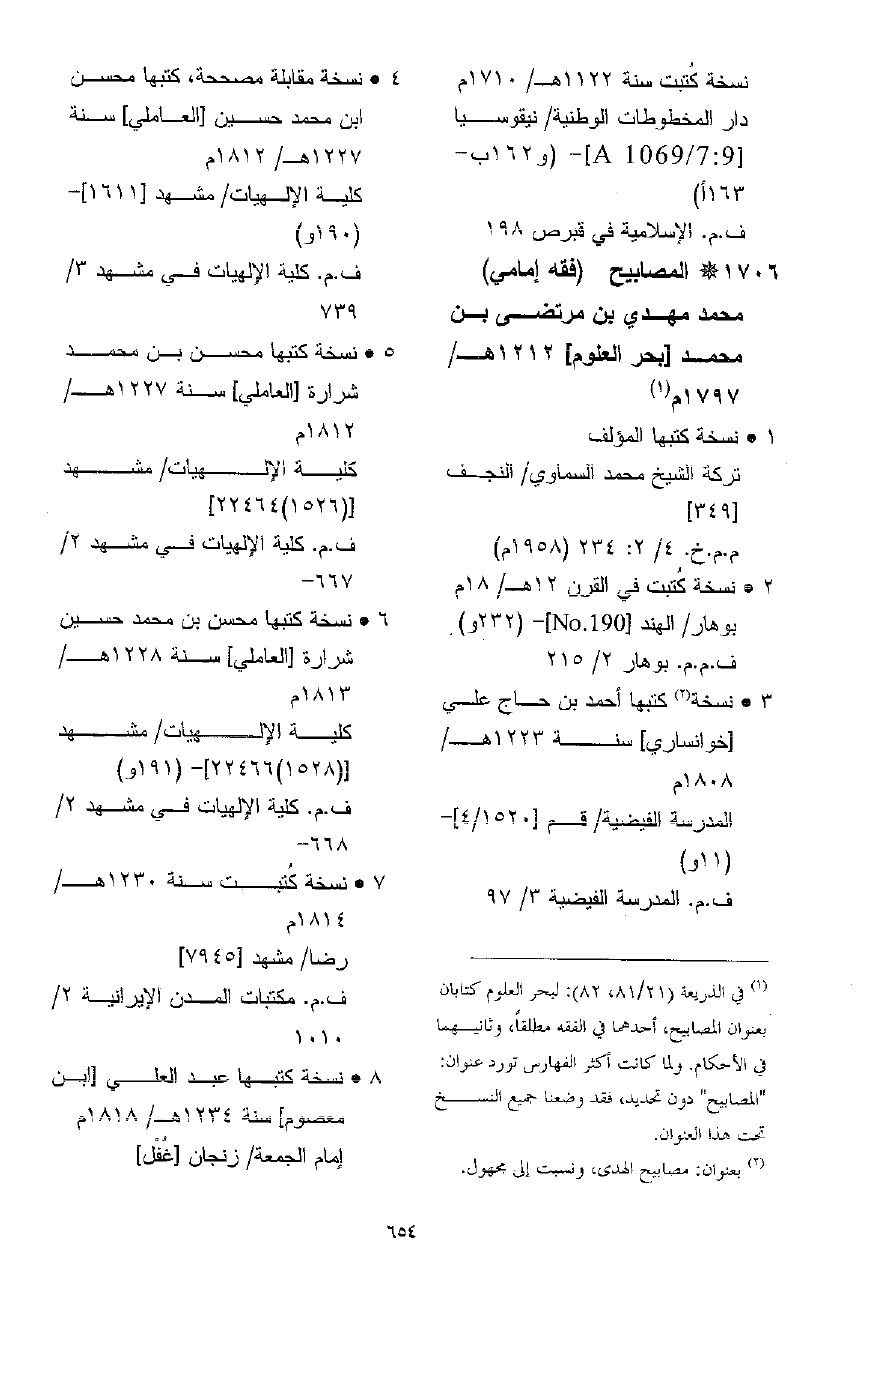 نسخة كُتبت سنة ١١٢٢هـ/ ١٧١٠م
دار المخطوطات الوطنية/ نيقوسيا
[A 1069/7:9]- (و١٦٢ب-
١٦٣أ)
ف.م. الإسلامية في قبرص ١٩٨
١٧٠٦❋ المصابيح (فقه إمامي)
محمد مهدي بن مرتضى بن
محمد [بحر العلوم] ١٢١٢هـ/
١٧٩٧م(١)
١ • نسخة كتبها المؤلف
تركة الشيخ محمد السماوي/ النجف
[٣٤٩]
م.م.خ. ٤/ ٢: ٢٣٤ (١٩٥٨م)
٢ • نسخة كُتبت في القرن ١٢هـ/ ١٨م
بوهار/ الهند [No.190]- (٢٣٢و)
ف.م.م. بوهار ٢/ ٢١٥
٣ • نسخة(٢) كتبها أحمد بن حاج علي
[خوانساري] سنة ١٢٢٣هـ/
١٨٠٨م
المدرسة الفيضية/ قم [٤/١٥٢٠]-
(١١و)
ف.م. المدرسة الفيضية ٣/ ٩٧
(١) في الذريعة (٨١/٢١، ٨٢): لبحر العلوم كتابان
بعنوان المصابيح، أحدهما في الفقه مطلقاً، وثانيهما
في الأحكام. ولما كانت أكثر الفهارس تورد عنوان:
"المصابيح" دون تحديد، فقد وضعنا جميع النسخ
تحت هذا العنوان.
(٢) بعنوان: مصابيح الهدى، ونسبت إلى مجهول.
٤ • نسخة مقابلة مصححة، كتبها محسن
ابن محمد حسين [العاملي] سنة
١٢٢٧هـ/ ١٨١٢م
كلية الإلهيات/ مشهد [١٦١١]-
(١٩٠و)
ف.م. كلية الإلهيات في مشهد ٣/
٧٣٩
٥ • نسخة كتبها محسن بن محمد
شرارة [العاملي] سنة ١٢٢٧هـ/
١٨١٢م
كلية الإلهيات/ مشهد
[(١٥٢٦)٢٢٤٦٤]
ف.م. كلية الإلهيات في مشهد ٢/
٦٦٧-
٦ • نسخة كتبها محسن بن محمد حسين
شرارة [العاملي] سنة ١٢٢٨هـ/
١٨١٣م
كلية الإلهيات/ مشهد
[(١٥٢٨)٢٢٤٦٦]- (١٩١و)
ف.م. كلية الإلهيات في مشهد ٢/
٦٦٨-
٧ • نسخة كُتبت سنة ١٢٣٠هـ/
١٨١٤م
رضا/ مشهد [٧٩٤٥]
ف.م. مكتبات المدن الإيرانية ٢/
١٠١٠
٨ • نسخة كتبها عبد العلي [ابن
معصوم] سنة ١٢٣٤هـ/ ١٨١٨م
إمام الجمعة/ زنجان [غُفْل]
٦٥٤